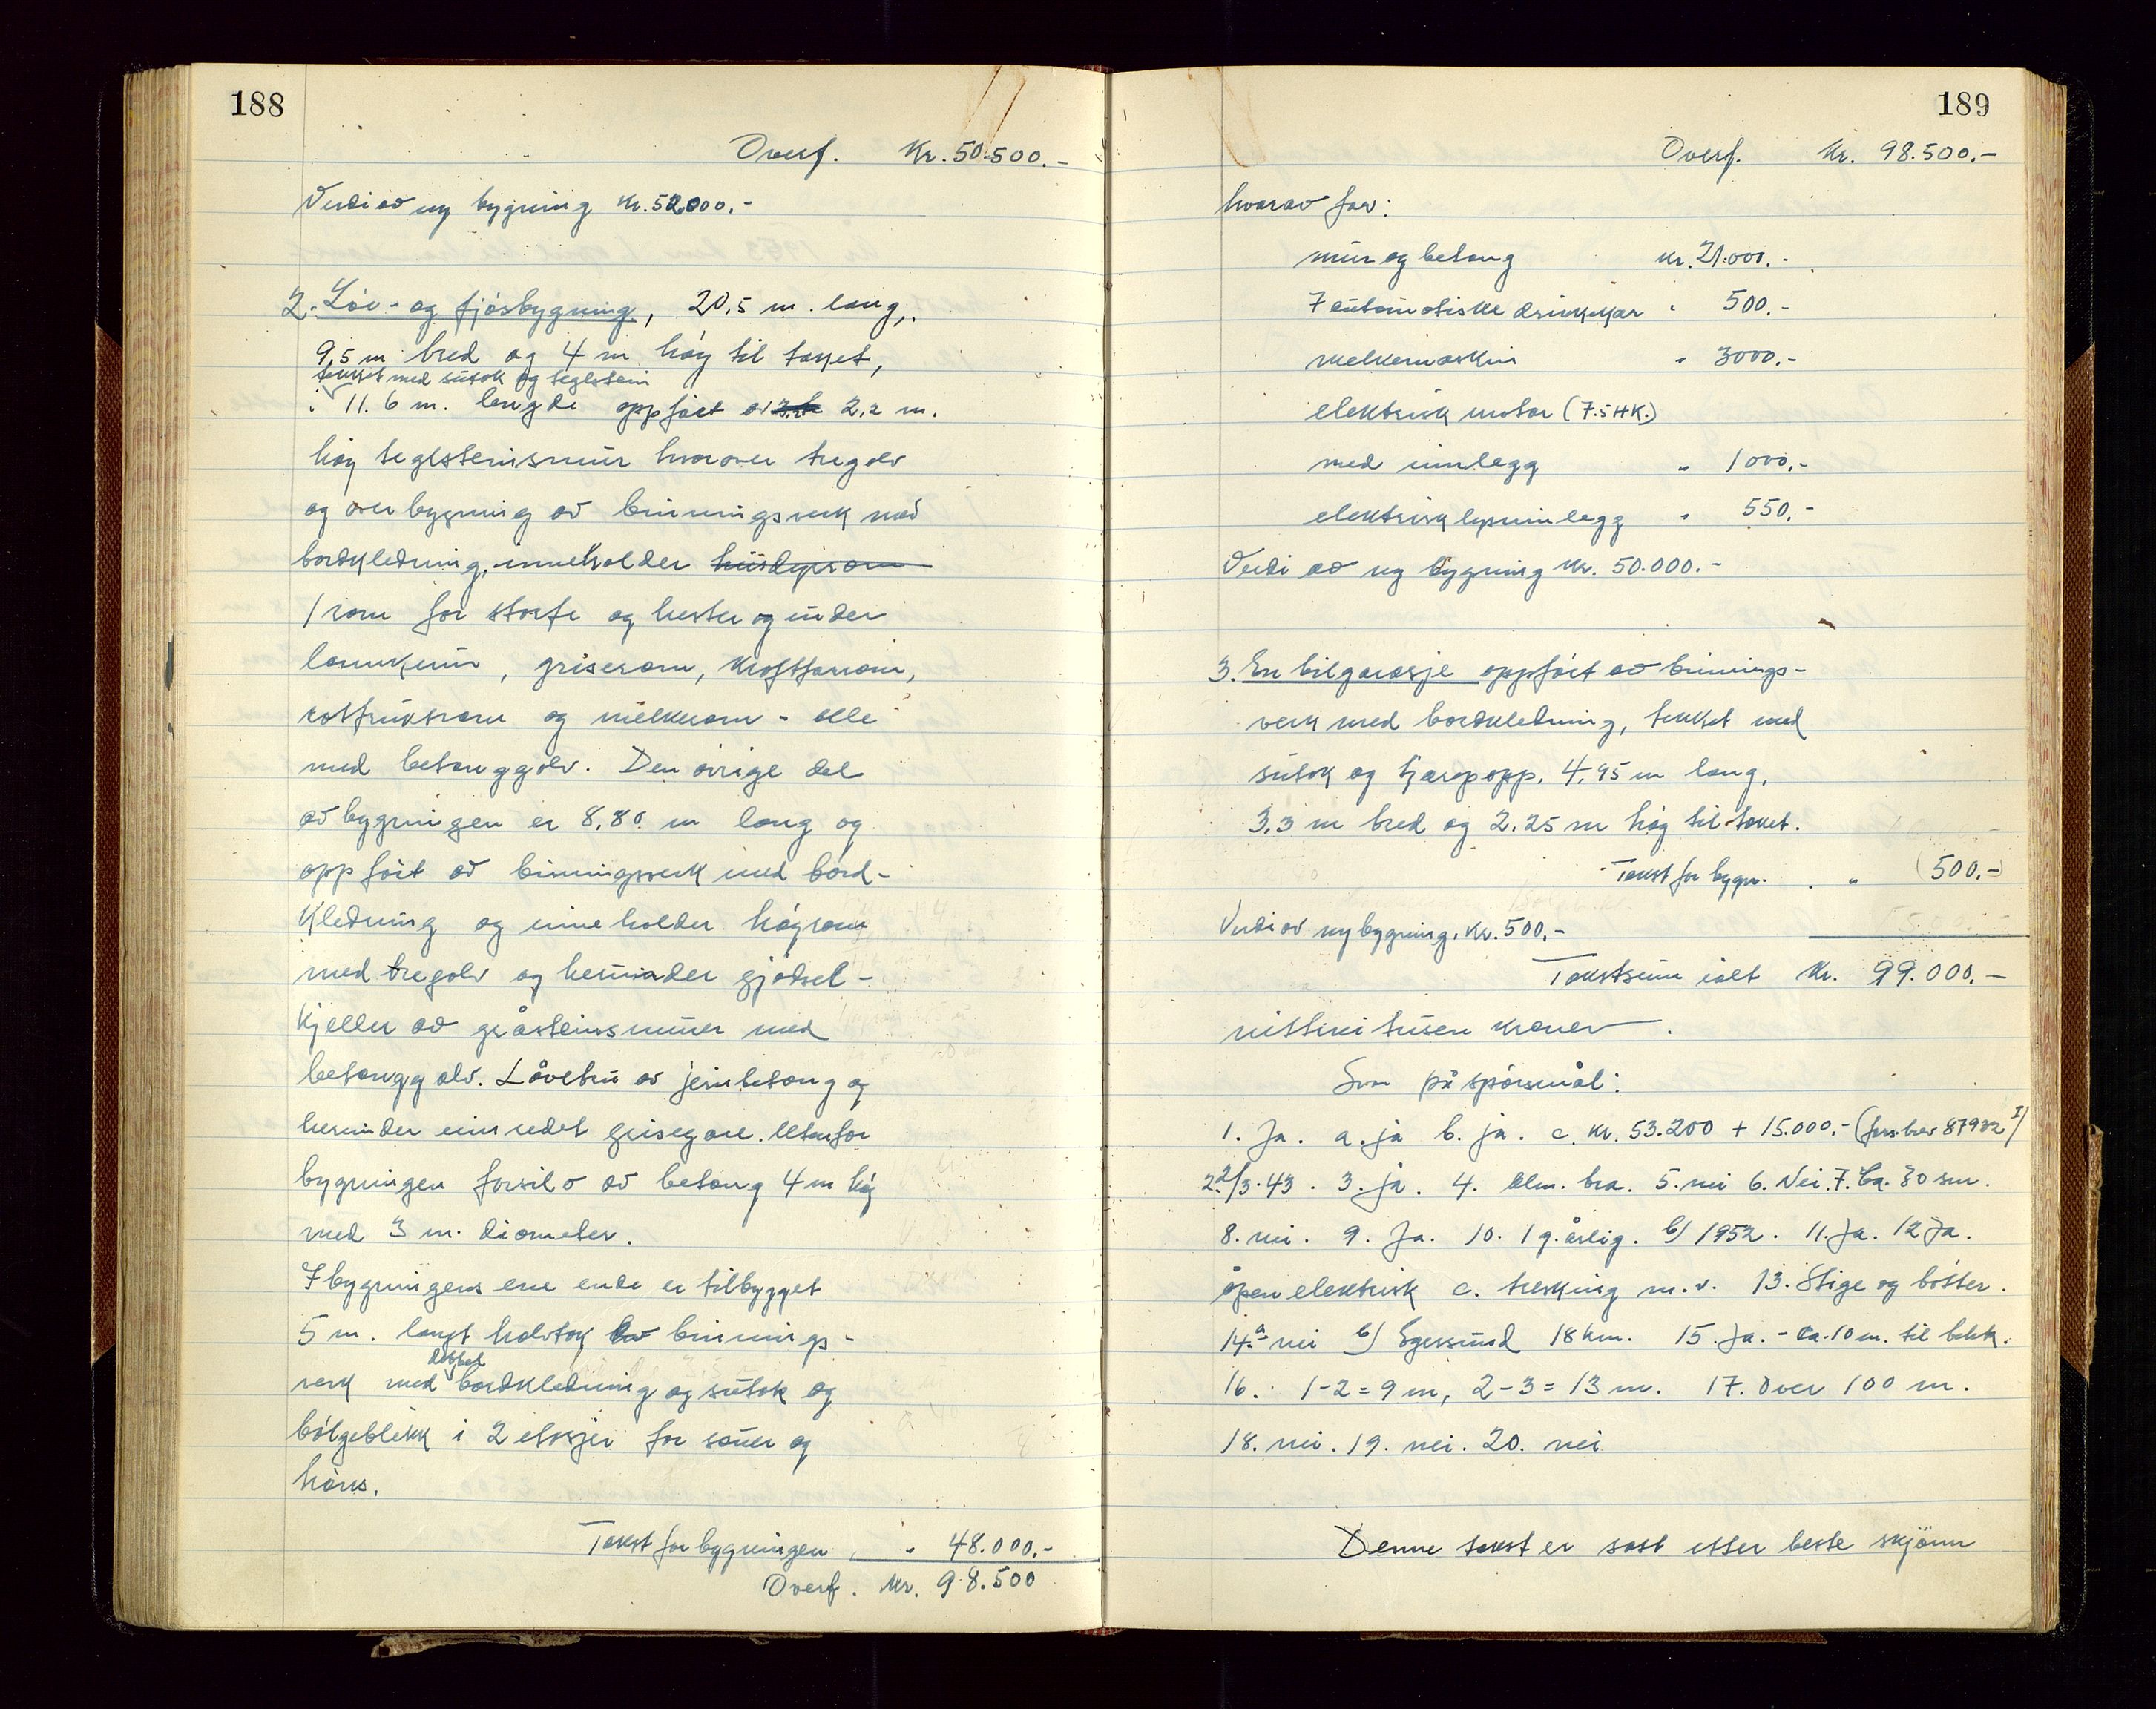 188
Overf. Kr. 50.500.-
Verdi av ny bygning Kr. 52000.-
2. Löe- og fjösbygning, 20,5 m. lang,
9,5 m bred og 4 m höy til taket,
tekket med sutak og teglstein
i 11.6 m. lengde oppfört av 2,2 m.
höy teglsteinsmur hvorover tregolv
og overbygning av binningsverk med
bordkledning, inneholder husdyrrom
1 rom for storfe og hester og under
lannkum, griserom, kraftforrom,
rotfruktrom og melkerom - alle
med betonggolv. Den övrige del
av bygningen er 8,80 m lang og
oppfört av binningsverk med bord-
kledning og inneholder höyrom
med tregolv og herunder gjödsel-
kjeller av gråsteinsmurer med
betonggolv. Låvebru av jernbetong og
herunder innredet grisegare. Utenfor
bygningen forsilo av betong 4 m höy
med 3 m. diameter.
I bygningens ene ende er tilbygget
5 m. langt halvtak av binnings-
dobbel
verk med bordkledning og sutak og
bölgeblikk i 2 etasjer for sauer og
höns.
Takst for bygningen " 48.000.-
Overf. Kr. 98.500
189
Overf. Kr. 98.500.-
hvorav for:
mur og betong kr. 21.000.-
7 automatiske drikkekar " 500.-
melkemaskin " 3000.-
elektrisk motor (7.5 HK.)
med innlegg " 1000.-
elektrisk lysinnlegg " 550.-
Verdi av ny bygning Kr. 50.000.-
3. En bilgarasje oppfört av binnings-
verk med bordkledning, tekket med
sutak og tjærepapp, 4,95 m lang,
3,3 m bred og 2.25 m höy til taket.
Takst for bygn. " (500.-)
Verdi av ny bygning, Kr. 500.-
Takstsum ialt Kr. 99.000.-
nittini tusen kroner.
Svar på spörsmål:
1. Ja. a. ja b. ja. c. Kr. 53.200 + 15.000.- (fors.brev 87932 I)
2. 2/3.43. 3. ja. 4. Alm. bra. 5. nei 6. Nei. 7. Ca. 30 sm.
8. nei. 9. Ja. 10. 1 g. årlig. b/ 1952. 11. Ja. 12 Ja.
åpen elektrisk c. tresking m.v. 13. Stige og bötter.
14. a nei b/ Egersund 18 km. 15. Ja. - Ca. 10 m. til bekk.
16. 1-2 = 9 m, 2-3 = 13 m. 17. Over 100 m.
18. nei. 19. nei. 20. nei
Denne takst er satt etter beste skjönn